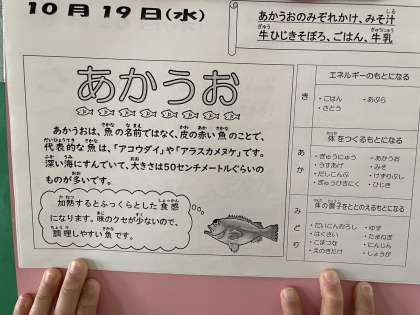 10月19日(水)
あかうおのみぞれかけ、みそ汁
牛ひじきそぼろ、ごはん、牛乳
あかうお
あかうおは、魚の名前ではなく、皮の赤い魚のことで、
代表的な魚は、「アコウダイ」や「アラスカメヌケ」です。
深い海にすんでいて、大きさは50センチメートルぐらいの
ものが多いです。
加熱するとふっくらとした食感
になります。味のクセが少ないので、
調理しやすい魚です。
き
エネルギーのもとになる
・ごはん ・あぶら
・さとう
あか
体をつくるもとになる
・ぎゅうにゅう ・あかうお
・うすあげ ・みそ
・だしこんぶ ・けずりぶし
・ぎゅうひきにく ・ひじき
みどり
体の調子をととのえるもとになる
・だいこんおろし ・ゆず
・はくさい ・たまねぎ
・こまつな ・にんじん
・えのきたけ ・しょうが